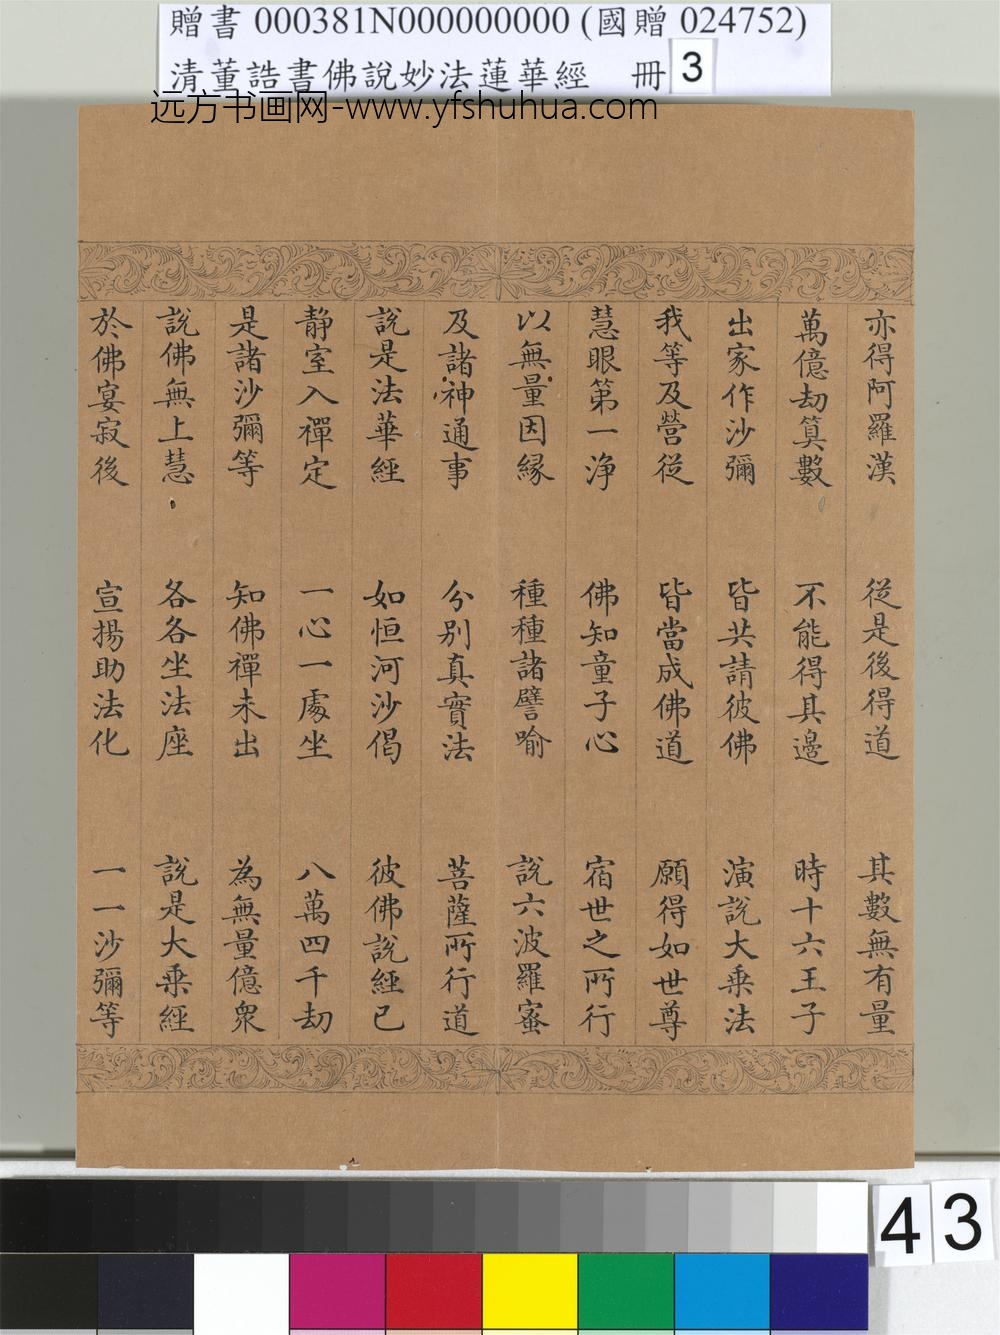 贈書 000381N000000000 (國贈 024752)
清董誥書佛說妙法蓮華經 冊 3
远方书画网-www.yfshuhua.com
亦得阿羅漢 從是後得道 其數無有量
萬億劫筭數 不能得其邊 時十六王子
出家作沙彌 皆共請彼佛 演說大乘法
我等及營從 皆當成佛道 願得如世尊
慧眼第一淨 佛知童子心 宿世之所行
以無量因緣 種種諸譬喻 說六波羅蜜
及諸神通事 分別真實法 菩薩所行道
說是法華經 如恒河沙偈 彼佛說經已
靜室入禪定 一心一處坐 八萬四千劫
是諸沙彌等 知佛禪未出 為無量億眾
說佛無上慧 各各坐法座 說是大乘經
於佛宴寂後 宣揚助法化 一一沙彌等
43